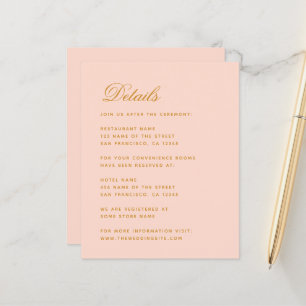 Details
JOIN US AFTER THE CEREMONY:
RESTAURANT NAME
15 NAME OF THE STREET
SAN FRANCISCO, CA 12345
FOR YOUR CONVENIENCE ROOMS
HAVE BEEN RESERVED AT:
HOTEL NAME
456 NAME OF THE STREET
SAN FRANCISCO, CA 12345
WE ARE REGISTERED AT
SOME STORE NAME
FOR MORE INFORMATION VISIT:
WWW.THEWEDDINGSITE.COM